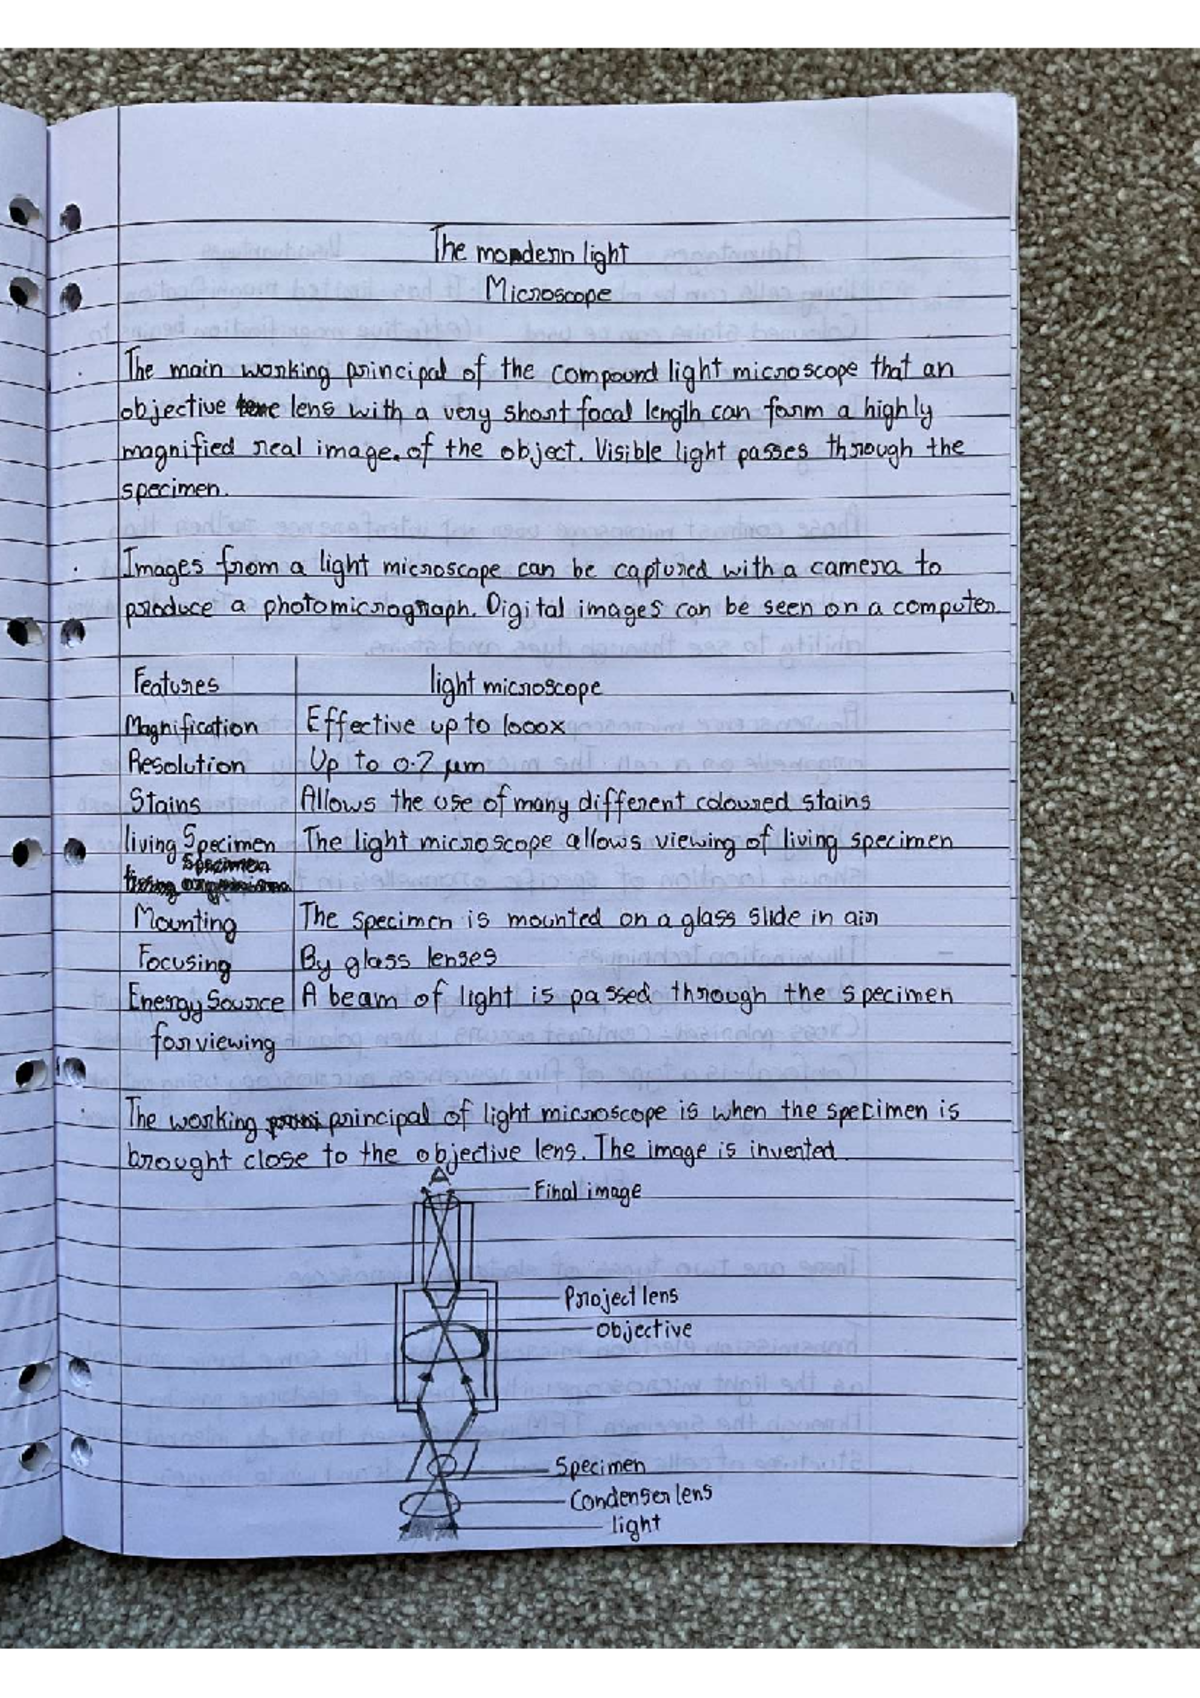 The mondern light
Microscope
The main working principal of the compound light microscope that an
objective lens with a very short focal length can form a highly
magnified real image. of the object. Visible light passes through the
specimen.
Images from a light microscope can be captured with a camera to
produce a photomicrograph. Digital images can be seen on a computer.
Features light microscope
Magnification Effective up to 1000x
Resolution Up to 0.2 μm
Stains Allows the use of many different coloured stains
living Specimen The light microscope allows viewing of living specimen
Specimen
Mounting The specimen is mounted on a glass slide in air
Focusing By glass lenses
Energy Source A beam of light is passed through the specimen
for viewing
The working principal of light microscope is when the specimen is
brought close to the objective lens. The image is inverted.
Final image
Project lens
objective
Specimen
Condenser lens
light